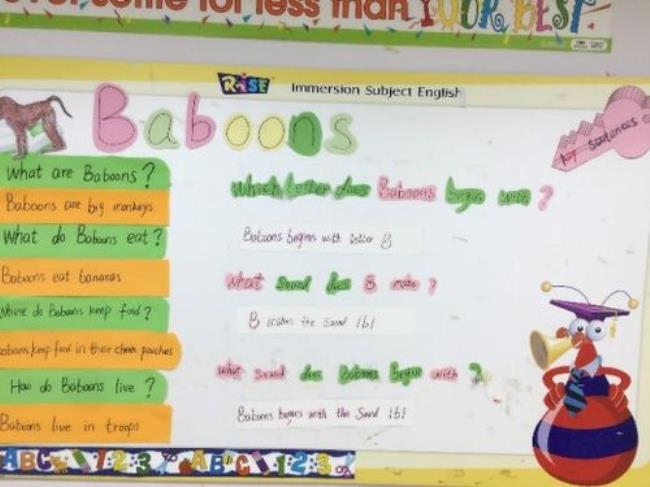 for less than YOUR BEST
RISE Immersion Subject English
Baboons
sentences
What are Baboons?
Baboons are big monkeys
What do Baboons eat?
Baboons eat bananas
Where do Baboons keep food?
Baboons keep food in their cheek pouches
How do Baboons live?
Baboons live in troops
Which letter does Baboons begin with?
Baboons begins with letter B
What sound does B make?
B makes the sound /b/
What sound does Baboons begin with?
Baboons begins with the sound /b/
ABC 123 ABC 123